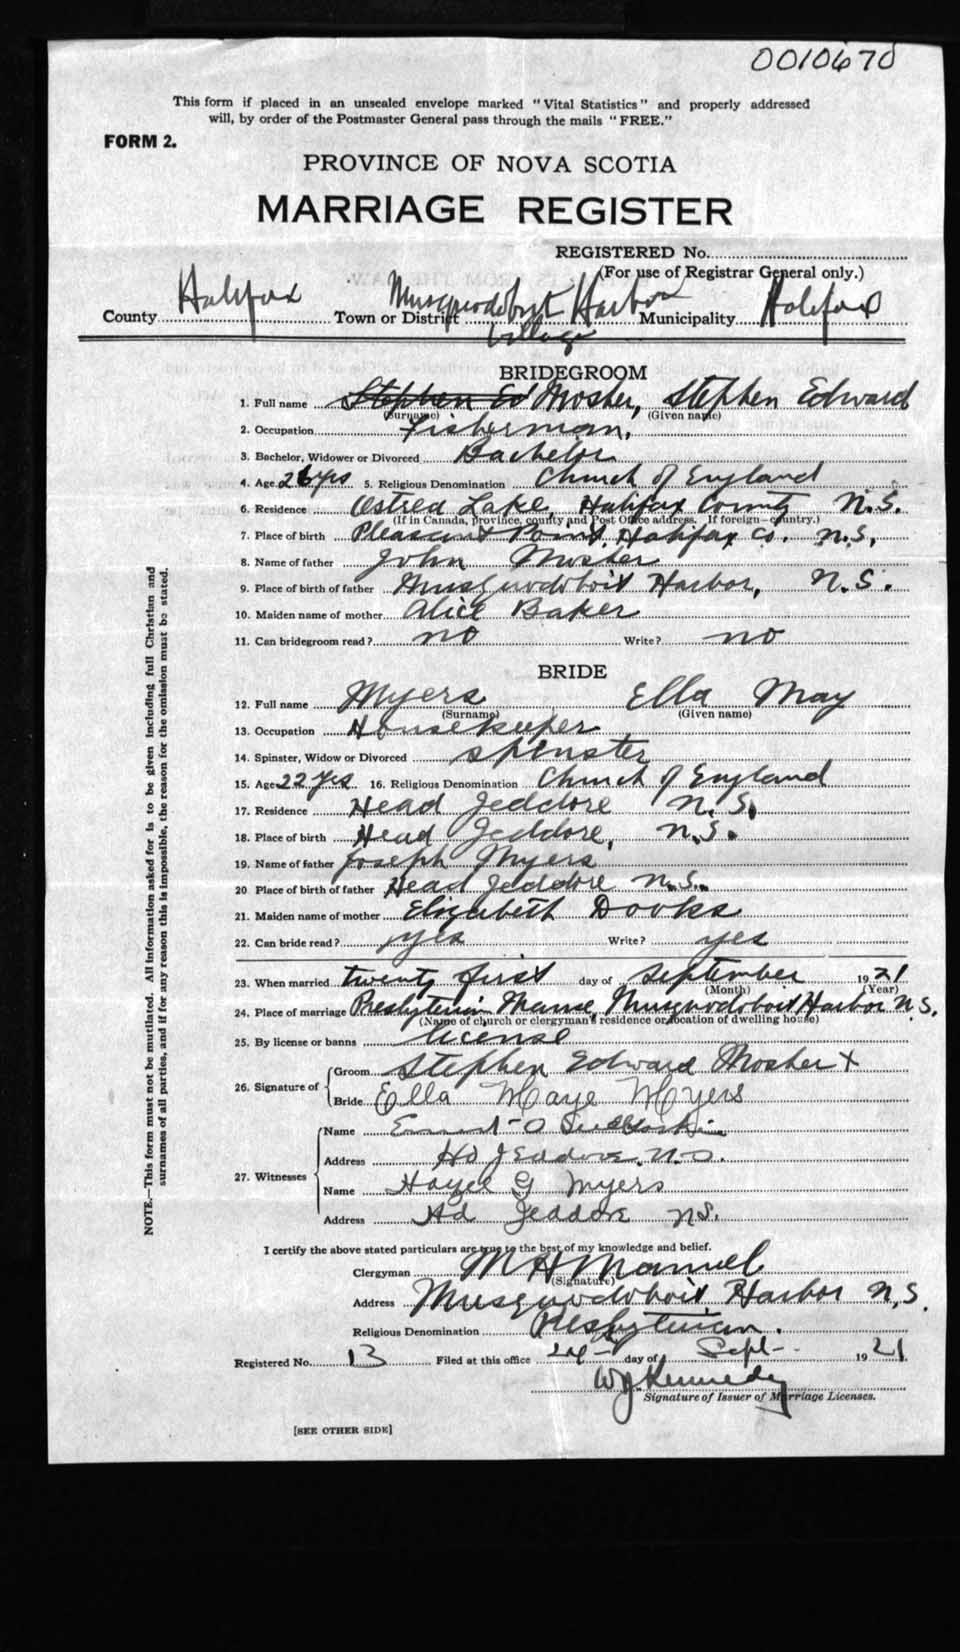 0010670
This form if placed in an unsealed envelope marked "Vital Statistics" and properly addressed
will, by order of the Postmaster General pass through the mails "FREE."
FORM 2.
PROVINCE OF NOVA SCOTIA
MARRIAGE REGISTER
REGISTERED No.
(For use of Registrar General only.)
County Halifax Town or District Musquodoboit Harbor Municipality Halifax
Village
BRIDEGROOM
1. Full name Stephen Ed Mosher, Stephen Edward
(Surname) (Given name)
2. Occupation Fisherman,
3. Bachelor, Widower or Divorced Bachelor
4. Age 26 yrs 5. Religious Denomination Church of England
6. Residence Lake, Halifax County N.S.
(If in Canada, province, county and Post Office address. If foreign—country.)
7. Place of birth Pleasant Point, Halifax Co. N.S.,
8. Name of father John Mosher
9. Place of birth of father Musquodoboit Harbor, N.S.
10. Maiden name of mother Alice Baker
11. Can bridegroom read? no Write? no
BRIDE
12. Full name Myers Ella May
(Surname) (Given name)
13. Occupation Housekeeper
14. Spinster, Widow or Divorced spinster
15. Age 22 yrs 16. Religious Denomination Church of England
17. Residence Head Jeddore N.S.
18. Place of birth Head Jeddore, N.S.
19. Name of father Joseph Myers
20 Place of birth of father Head Jeddore N.S.
21. Maiden name of mother Elizabeth Dooks
22. Can bride read? yes Write? yes
23. When married twenty first day of September 1921
(Month) (Year)
24. Place of marriage Presbyterian Manse, Musquodoboit Harbor N.S.
(Name of church or clergyman's residence or location of dwelling house)
25. By license or banns license
26. Signature of Groom Stephen Edward Mosher X
Bride Ella Maye Myers
27. Witnesses
Name
Address Hd Jeddore. N.S.
Name G Myers
Address Hd Jeddore N.S.
I certify the above stated particulars are true to the best of my knowledge and belief.
Clergyman M H Manuel
(Signature)
Address Musquodoboit Harbor N.S.
Religious Denomination Presbyterian.
Registered No. 13 Filed at this office day of Sept 1921
W J Kennedy
Signature of Issuer of Marriage Licenses.
[SEE OTHER SIDE]
NOTE.—This form must not be mutilated. All information asked for is to be given including full Christian and
surnames of all parties, and if for any reason this is impossible, the reason for the omission must be stated.